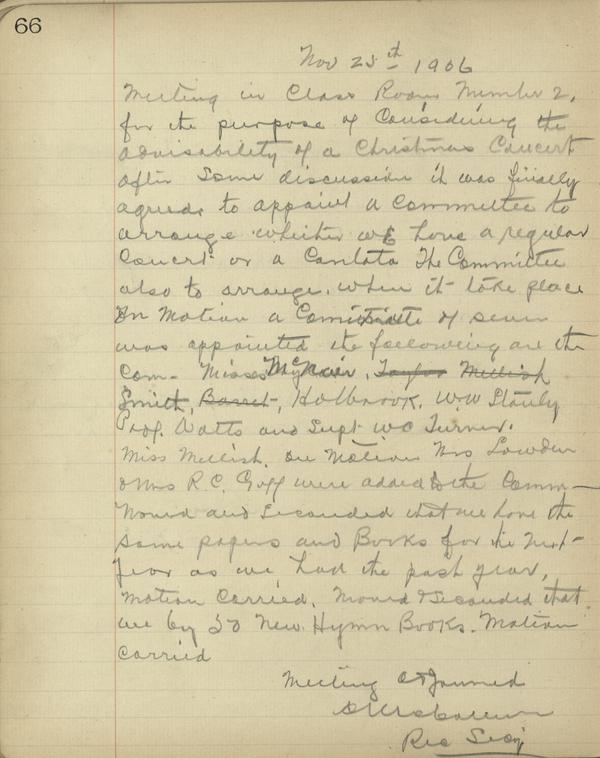 66
Nov 25th 1906
Meeting in Class Room Number 2,
for the purpose of Considering the
advisability of a Christmas Concert
after some discussion it was finally
agreed to appoint a Committee to
arrange whether we have a regular
Concert or a Cantata The Committee
also to arrange. when it take place
On Motion a Committe of seven
was appointed the following are the
Com- Misses McNair, Taylor Mellish
Smith, Barret, Holbrook, W.W. Stanly
Prof. Watts and Supt W C Turner.
Miss Mellish. on Motion Mrs Lowden
& Mrs R. C. Goff were added to the Comm-
Moved and Seconded that we have the
same papers and Books for the Next-
Year as we had the past year,
Motion Carried. Moved & Seconded that
we by 50 New Hymn Books. Motion
Carried
Meeting Adjourned
Rec Secy